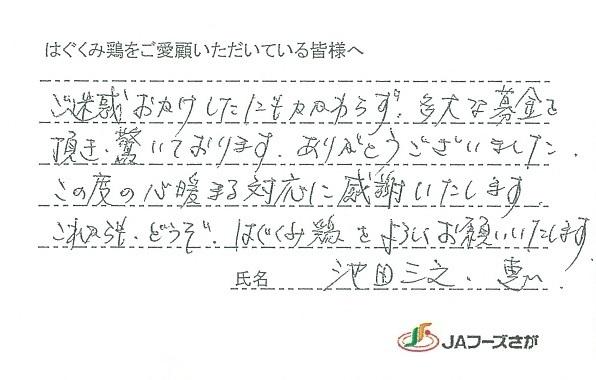 はぐくみ鶏をご愛顧いただいている皆様へ
ご迷惑おかけしたにもかかわらず、多大な募金を
頂き、驚いております。ありがとうございました。
この度の心暖まる対応に感謝いたします。
これからも、どうぞ、はぐくみ鶏をよろしくお願いいたします。
氏名 池田三之、恵
JAフーズさが